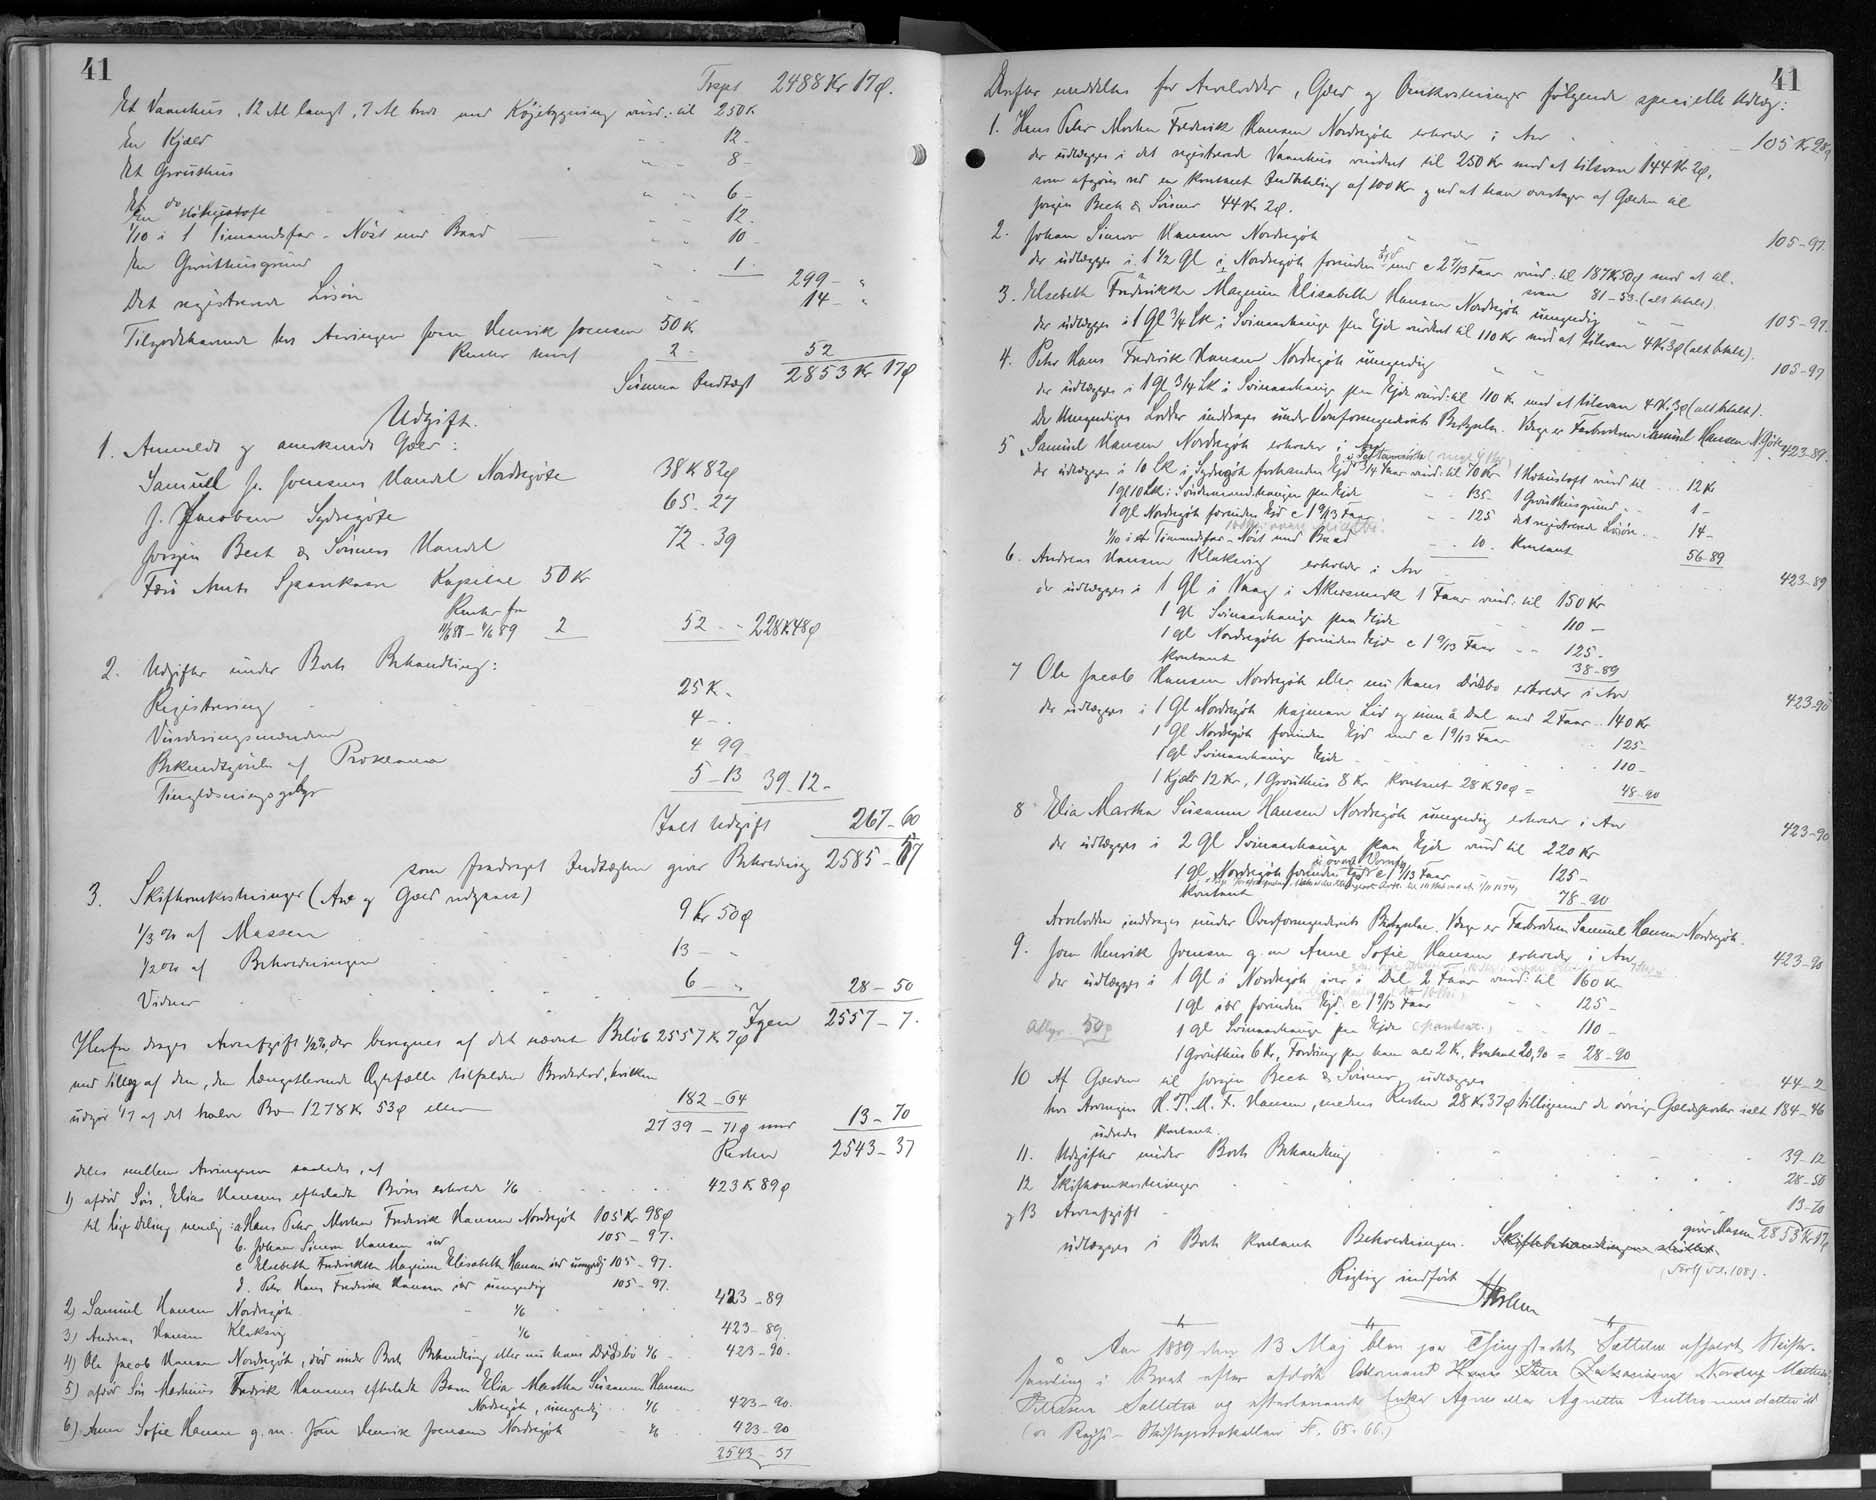 41
Trspt 2488 Kr 17 ø.
Et Vaanhus, 12 Al langt, 7 Al bredt med Köjebygning vurd. til 250 K
En Kjæld " " 12 -
Et Gröuthus " " 8 -
Et do " " 6 -
En Hökustoft " " 12
1/10 i 1 Timandsfar - Nöst med Baad " " 10
En Gröuthusgrund " " 1. 299 - "
Det registrerede Lösöre 14 - "
Tilgodehavende hos Arvingen Joen Henrik Joensen 50 K
Renter heraf 2 - 52
Summa Indtægt 2853 Kr 17 ø
Udgift.
1. Anmeldt og anerkendt Gæld:
Samuel J. Joensens Handel Nordregöte 38 K 82 ø
J. Jacobsen Sydregöte 65. 27
Jorgin Bech & Sönners Handel 72. 39
Færö Amts Sparekasse Kapital 50 Kr
Renter fra
11/6 88 - 11/6 89 2 52 - 228 K 48 ø
2. Udgifter under Boets Behandling:
Registrering 25 K -
Vurderingsmændene 4 - .
Bekendtgörelse af Proklama 4 99
Tinglæsningsgebyr 5 - 13 39 - 12 -
Ialt Udgift 267 - 60
som fradraget Indtægten giver Beholdning 2585 - 57
3. Skifteomkostninger (Arv og Gæld udgaaet)
1/3 % af Massen 9 Kr 50 ø
1/2 % af Beholdningen 13 - "
Vidner 6 - " 28 - 50
Igen 2557 - 7.
Herfra drages Arveafgift 1/2 %, der beregnes af det nævnte Beløb 2557 K 7 ø
med Tillæg af den, den længstlevende Ægtefælle tilfaldne Broderlod, hvilken
udgör 1/7 af det halve Bo - 1278 K 53 ø eller 182 - 64
2739 - 71 ø med 13 - 70
Resten 2543 - 37
deles mellem Arvingerne saaledes, at
1) afdöd Sön, Elias Hansens efterladte Börn erholde 1/6 423 K 89 ø
til lige Deling, nemlig: a. Hans Peter Morten Fredrik Hansen Nordregöte 105 Kr 98 ø
b. Johan Simon Hansen ibd 105 - 97.
c Elsebeth Fredrikke Magnine Elisabeth Hansen ibd umyndig 105 - 97.
d. Peter Hans Fredrik Hansen ibd umyndig 105 - 97.
2) Samuel Hansen Nordregöte 1/6 423 - 89
3) Andreas Hansen Klaksvig 1/6 423 - 89.
4) Ole Jacob Hansen Nordregöte, död under Boets Behandling eller nu hans Dödsbo 1/6 423 - 90.
5) afdöd Sön Martinus Fredrik Hansens efterladte Barn Elia Martha Susanne Hansen
Nordregöte, umyndig 1/6 423 - 90.
6) Anne Sofie Hansen g. m. Joen Henrik Joensen Nordregöte 1/6 423 - 90
2543 - 37
41
Derfor meddeltes for Arvelodder, Gæld og Omkostninger følgende specielle Udlæg:
1. Hans Peter Morten Fredrik Hansen Nordregöte erholder i Arv 105 Kr 98 ø
der udlægges i det registrerede Vaanhus vurderet til 250 Kr mod at tilsvare 144 Kr 2 ø,
som afgöres ved en kontant Indbetaling af 100 Kr og ved at han overtager af Gælden til
Jorgin Bech & Sönner 44 Kr 2 ø.
2. Johan Simon Hansen Nordregöte " " 105 - 97.
der udlægges i 1 1/2 Gl i Nordregöte forinden Ejd med c 2 7/13 Faar vurd. til 187 K 50 ø mod at til-
svare 81 - 53 (alt betalt).
3. Elsebeth Fredrikke Magnine Elisabeth Hansen Nordregöte umyndig 105 - 97.
der udlægges i 1 Gl 3/4 Sk i Svinaarhauge fra Ejde vurderet til 110 Kr mod at tilsvare 4 K 3 ø (alt betalt).
4. Peter Hans Fredrik Hansen Nordregöte umyndig " " 105 - 97
der udlægges i 1 Gl 3/4 Sk i Svinaarhauge fra Ejde vurd: til 110 Kr mod at tilsvare 4 K 3 ø (alt betalt).
De Umyndiges Lodder inddrages under Overformynderiets Bestyrelse. Værge er Farbroderen Samuel Hansen N. Göte
5. Samuel Hansen Nordregöte erholder i Arv 423 - 89.
der udlægges i 10 Sk i Sydregöte forhanden Ejd 3/4 Faar vurd: til 70 Kr 1 Hökustoft vurd til 12 Kr
1 gl 10 Sk i fra Ejde " 135 - 1 Gröuthusgrund " 1 -
1 gl Nordregöte forinden Ejd c 1 9/13 Faar " 125 det registrerede Lösöre 14 -
1/10 i et Timandsfar - Nöst med Baad " 10 - Kontant 56 - 89
6. Andreas Hansen Klaksvig erholder i Arv 423 - 89
der udlægges i 1 Gl i Vaag i Akersmark 1 Faar vurd: til 150 Kr
1 gl Svinaarhauge fra Ejde 110 -
1 gl Nordregöte forinden Ejd c 1 9/13 Faar " " 125 -
Kontant 38 - 89
7 Ole Jacob Hansen Nordregöte eller nu hans Dödsbo erholder i Arv 423 - 90
der udlægges i 1 Gl Nordregöte Lid og inn á Dal med 2 Faar 140 Kr
1 Gl Nordregöte forinden Ejd med c 1 9/13 Faar 125 -
1 gl Svinaarhauge Ejde 110 -
1 Kjæld 12 Kr, 1 Gröuthus 8 Kr Kontant 28 K 90 ø = 48 - 90
8 Elia Martha Susanne Hansen Nordregöte umyndig erholder i Arv 423 - 90
der udlægges i 2 Gl Svinaarhauge fra Ejde vurd til 220 Kr
1 gl Nordregöte forinden Ejd c 1 9/13 Faar 125 -
Kontant 78 - 90
Arvelodden inddrages under Overformynderiets Bestyrelse. Værge er Farbroderen Samuel Hansen Nordregöte.
9. Joen Henrik Joensen g. m Anne Sofie Hansen erholder i Arv 423 - 90
der udlægges i 1 Gl i Nordregöte iver i Dal 2 Faar vurd: til 160 Kr
1 gl ibd forinden Ejd c 1 9/13 Faar " " 125 -
1 gl Svinaarhauge fra Ejde " " 110 -
1 Gröuthus 6 Kr, Fordring paa ham selv 2 K, Kontant 20,90 = 28 - 90
10 Af Gælden til Jorgin Bech & Sönner udlægges 44 - 2
hos Arvingen H. P. M. F. Hansen, medens Resten 28 K 37 ø tilligemed de övrige Gældsposter ialt 184 - 46
udredes kontant.
11. Udgifter under Boets Behandling 39 - 12
12 Skifteomkostninger 28 - 50
og 13 Arveafgift 13 - 70
udlægges i Boets kontante Beholdninger. Skiftebehandlingen sluttet giver Massen 2853 Kr 17 ø
Rigtig indfört
Aar 1889 den 13 Maj blev paa Thingstedet Sælletræ afholdt Skifte-
samling i Boet efter afdöde
Sælletræ og efterlevende Enke Agnes eller Agnethe
(cfr Regs - Skifteprotokollen F. 65. 66.)